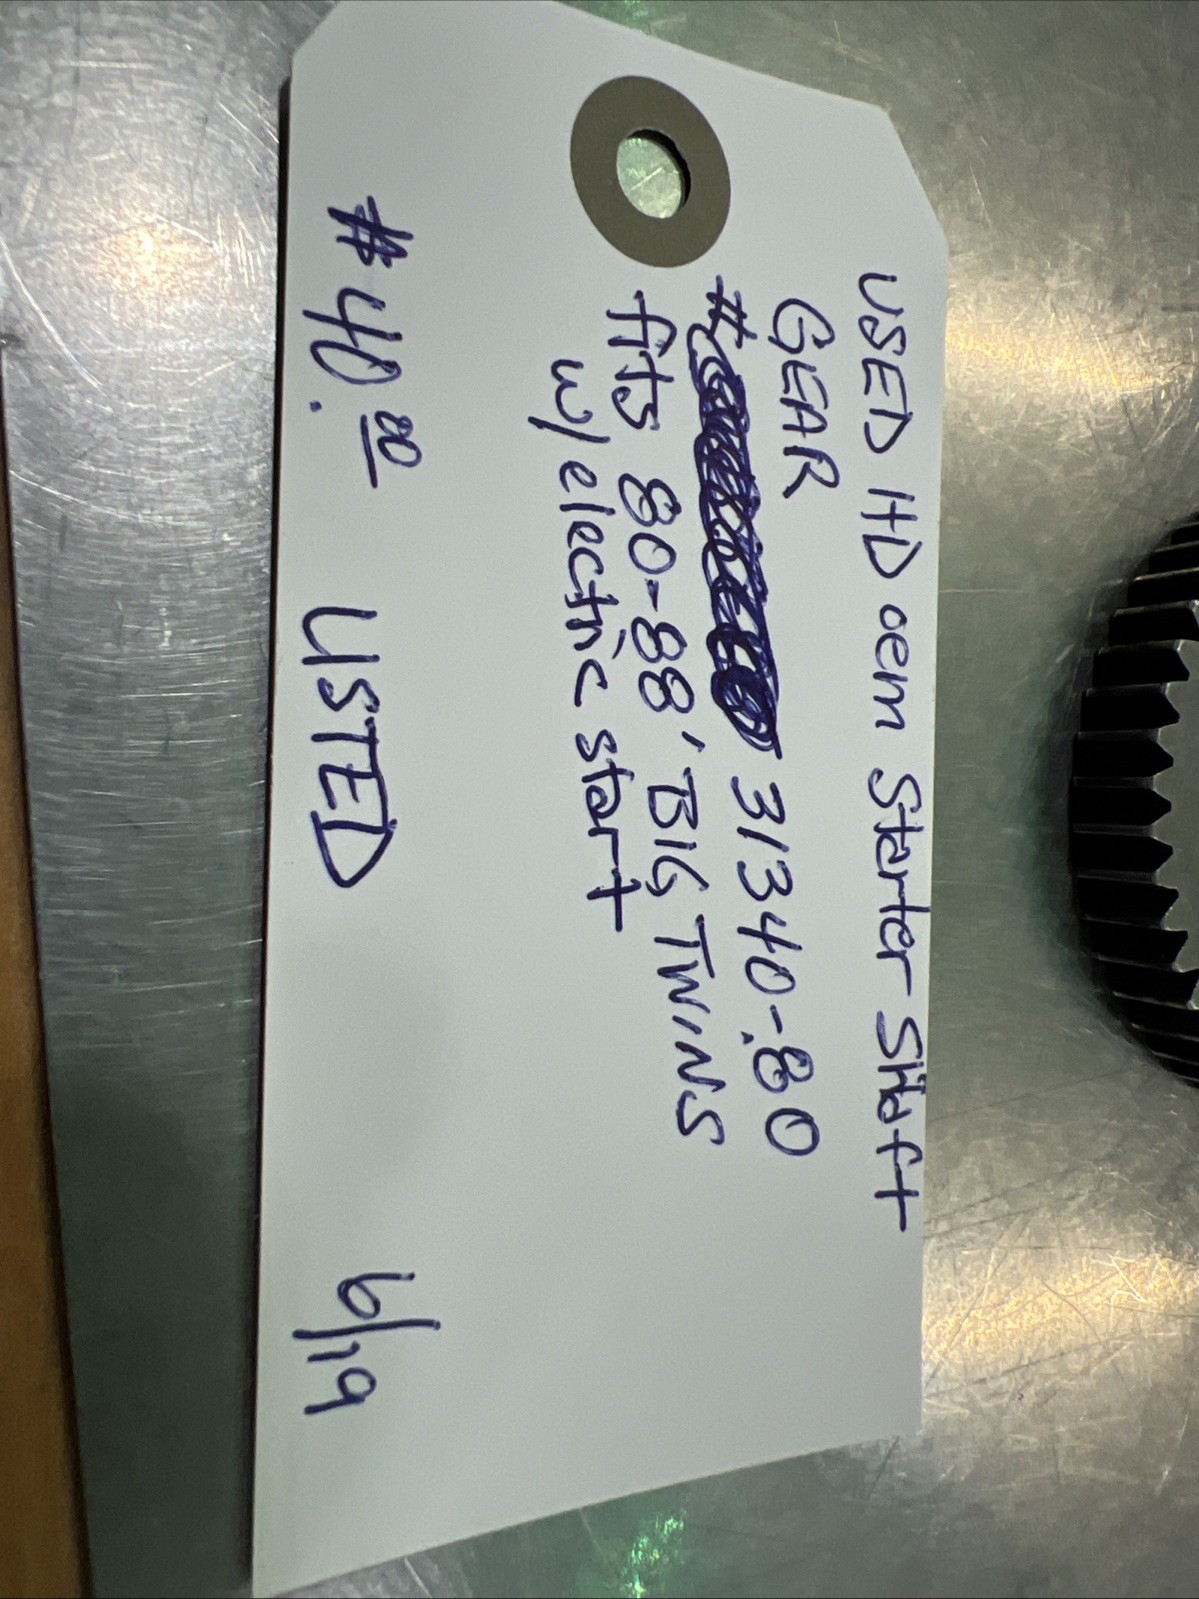 USED HD oem Starter Shaft
GEAR
# 31340-80
fits 80-88' BIG TWINS
w/electric start
$40.00 LISTED 6/19